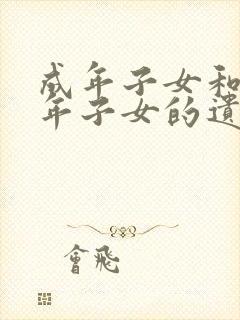 成年子女和
年子女的遺
會飛